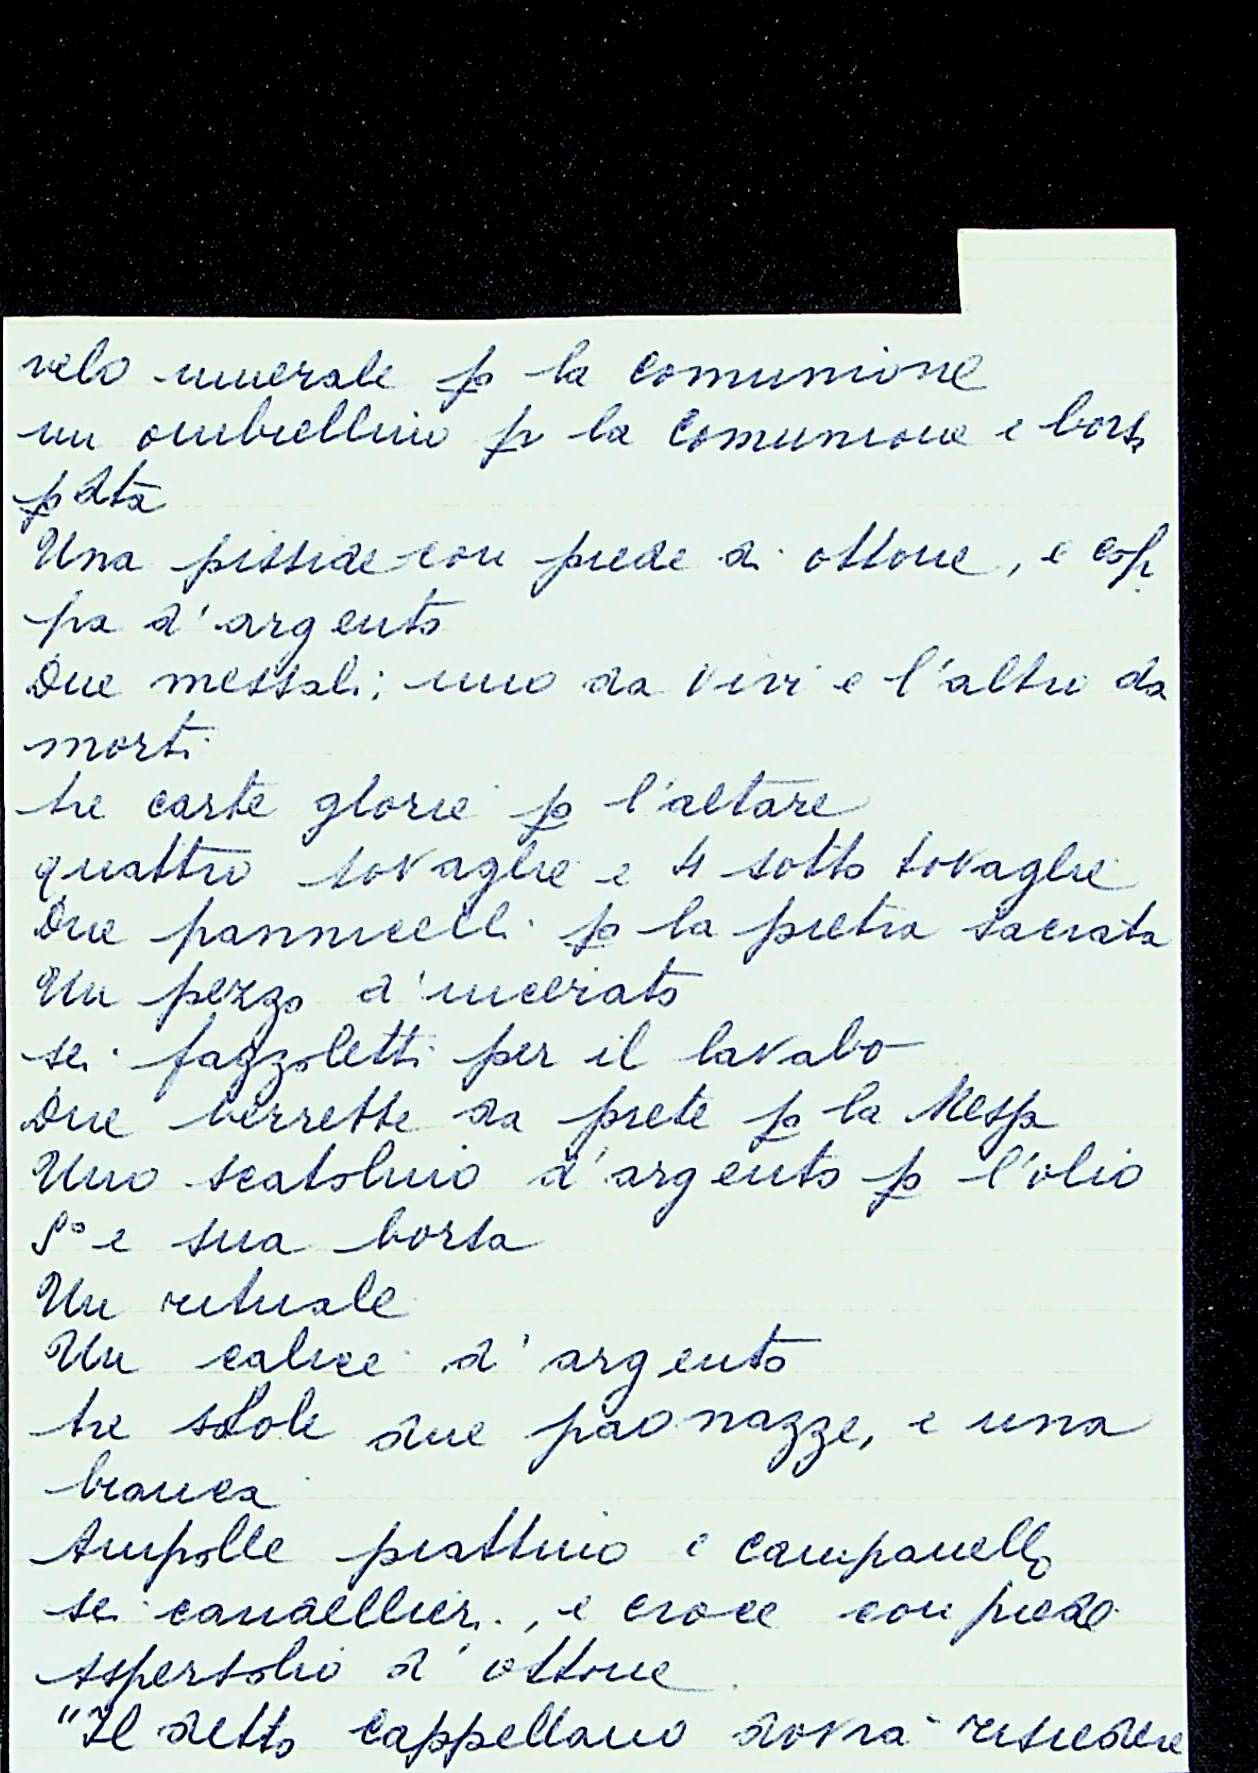 velo umerale p la comunione
un ombrellino p la comunione e bors
p dta
Una pisside con piede di ottone, e cop
pa d'argento
Due messali; uno da vivi e l'altro da
morti
tre carte glorie p l'altare
quattro tovaglie e 4 sotto tovaglie
Due pannicelli p la pietra sacrata
Un pezzo d'incerato
sei fazzoletti per il lavabo
Due berrette da prete p la Messa
Uno scatolino d'argento p l'olio
Sº e sua borsa
Un rituale
Un calice d'argento
tre stole due paonazze, e una
bianca
Ampolle piattino e campanello
sei candellieri, e croce con piede
Aspersolio d'ottone
"Il detto cappellano dovrà risiedere